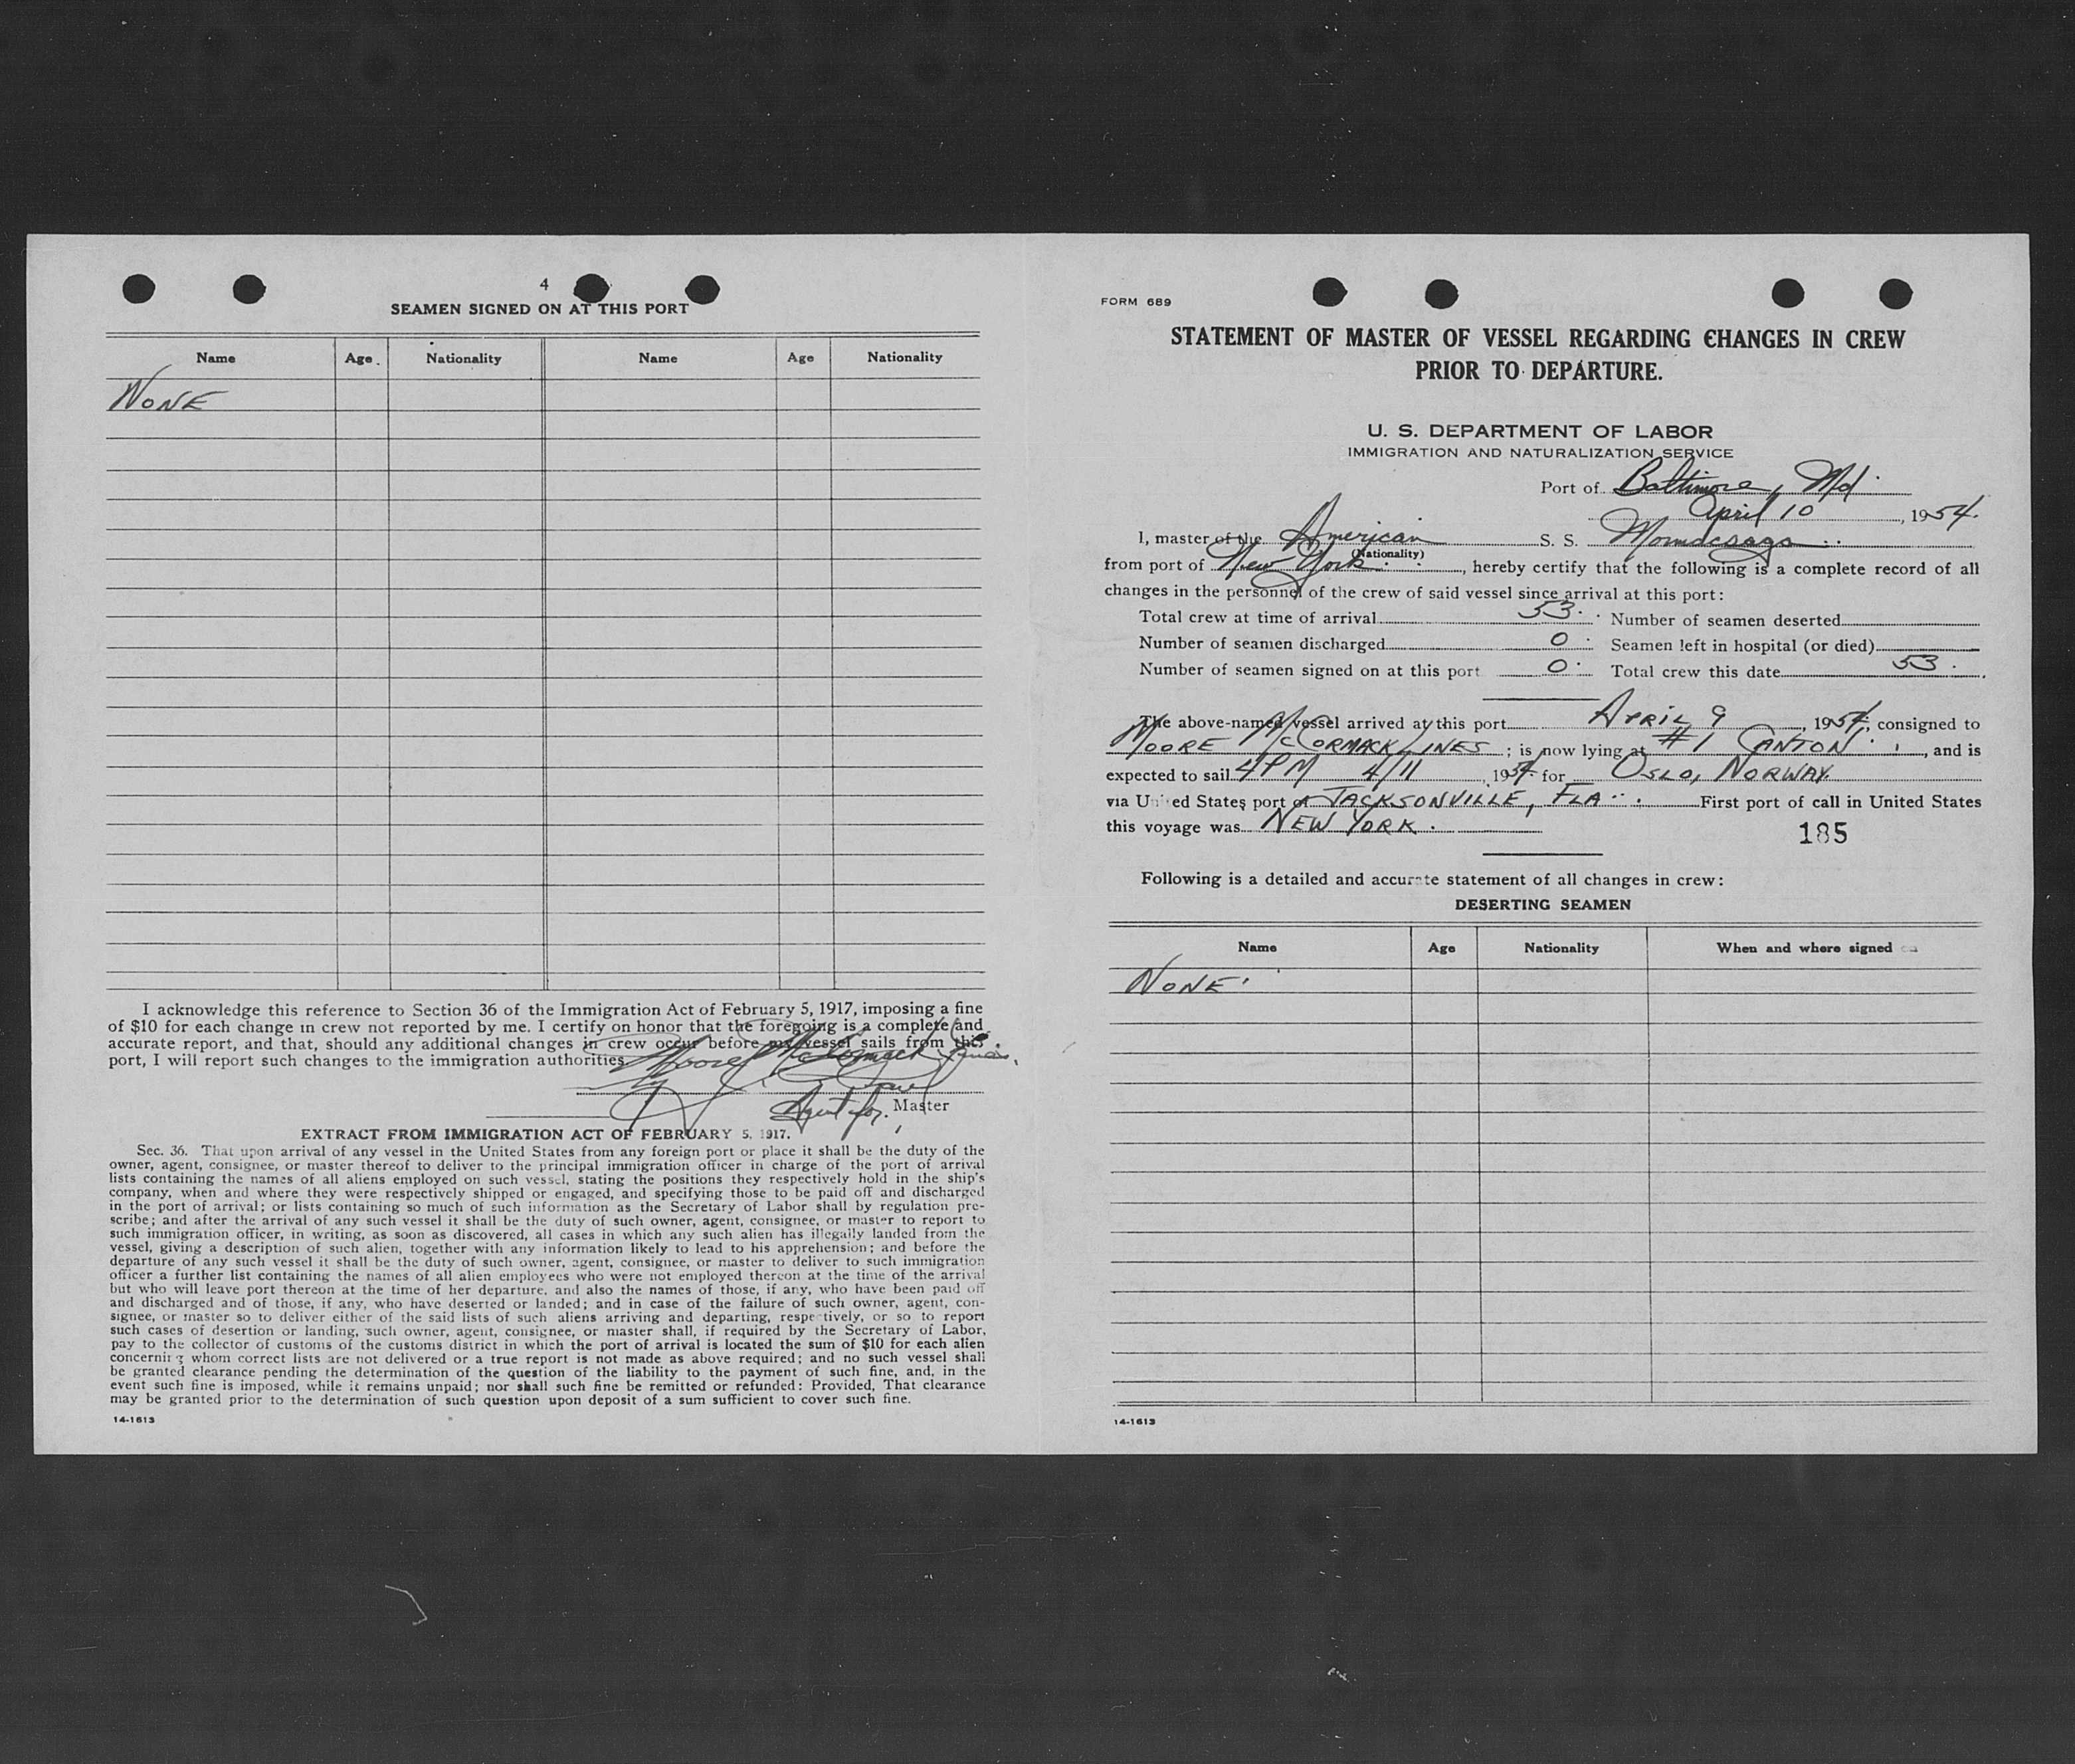 4
SEAMEN SIGNED ON AT THIS PORT
Name Age Nationality Name Age Nationality
NONE
I acknowledge this reference to Section 36 of the Immigration Act of February 5, 1917, imposing a fine
of $10 for each change in crew not reported by me. I certify on honor that the foregoing is a complete and
accurate report, and that, should any additional changes in crew occur before my vessel sails from this
port, I will report such changes to the immigration authorities.
Moore McCormack Lines.
by
Agent for, Master
EXTRACT FROM IMMIGRATION ACT OF FEBRUARY 5, 1917.
Sec. 36. That upon arrival of any vessel in the United States from any foreign port or place it shall be the duty of the
owner, agent, consignee, or master thereof to deliver to the principal immigration officer in charge of the port of arrival
lists containing the names of all aliens employed on such vessel, stating the positions they respectively hold in the ship's
company, when and where they were respectively shipped or engaged, and specifying those to be paid off and discharged
in the port of arrival; or lists containing so much of such information as the Secretary of Labor shall by regulation pre-
scribe; and after the arrival of any such vessel it shall be the duty of such owner, agent, consignee, or master to report to
such immigration officer, in writing, as soon as discovered, all cases in which any such alien has illegally landed from the
vessel, giving a description of such alien, together with any information likely to lead to his apprehension; and before the
departure of any such vessel it shall be the duty of such owner, agent, consignee, or master to deliver to such immigration
officer a further list containing the names of all alien employees who were not employed thereon at the time of the arrival
but who will leave port thereon at the time of her departure, and also the names of those, if any, who have been paid off
and discharged and of those, if any, who have deserted or landed; and in case of the failure of such owner, agent, con-
signee, or master so to deliver either of the said lists of such aliens arriving and departing, respectively, or so to report
such cases of desertion or landing, such owner, agent, consignee, or master shall, if required by the Secretary of Labor,
pay to the collector of customs of the customs district in which the port of arrival is located the sum of $10 for each alien
concerning whom correct lists are not delivered or a true report is not made as above required; and no such vessel shall
be granted clearance pending the determination of the question of the liability to the payment of such fine, and, in the
event such fine is imposed, while it remains unpaid; nor shall such fine be remitted or refunded: Provided, That clearance
may be granted prior to the determination of such question upon deposit of a sum sufficient to cover such fine.
14-1613
FORM 689
STATEMENT OF MASTER OF VESSEL REGARDING CHANGES IN CREW
PRIOR TO DEPARTURE.
U. S. DEPARTMENT OF LABOR
IMMIGRATION AND NATURALIZATION SERVICE
Port of Baltimore, Md.
April 10, 1954.
I, master of the American S. S. Mormacsaga
(Nationality)
from port of New York, hereby certify that the following is a complete record of all
changes in the personnel of the crew of said vessel since arrival at this port:
Total crew at time of arrival 53. Number of seamen deserted
Number of seamen discharged 0 Seamen left in hospital (or died)
Number of seamen signed on at this port 0 Total crew this date 53.
The above-named vessel arrived at this port APRIL 9, 1954, consigned to
MOORE McCORMACK LINES; is now lying at #1 CANTON, and is
expected to sail 4 PM 4/11, 1954 for OSLO, NORWAY.
via United States port of JACKSONVILLE, FLA. First port of call in United States
this voyage was NEW YORK.
185
Following is a detailed and accurate statement of all changes in crew:
DESERTING SEAMEN
Name Age Nationality When and where signed on
NONE
14-1613